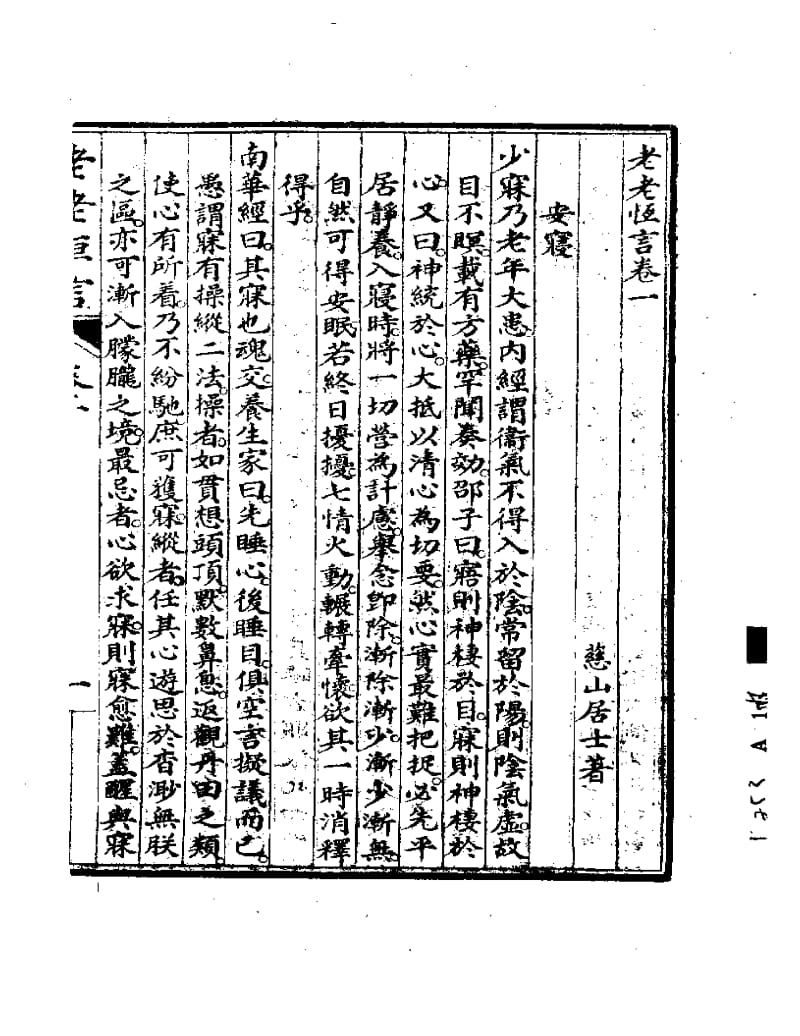 老老恒言卷一
慈山居士著
安寢
少寐乃老年大患。內經謂衞氣不得入於陰。常留於陽。則陰氣虛。故
目不瞑。載有方藥。罕聞奏效。邵子曰。寤則神棲於目。寐則神棲於
心。又曰。神統於心。大抵以清心為切要。然心實最難把捉。必先平
居靜養。入寢時。將一切營為計慮。舉念即除。漸除漸少。漸少漸無。
自然可得安眠。若終日擾擾。七情火動。輾轉牽懷。欲其一時消釋
得乎。
南華經曰。其寐也魂交。養生家曰。先睡心。後睡目。俱空言擬議而已。
愚謂寐有操縱二法。操者。如貫想頭頂。默數鼻息。返觀丹田之類
使心有所着。乃不紛馳。庶可獲寐。縱者。任其心遊思於杳渺無朕
之區。亦可漸入朦朧之境。最忌者。心欲求寐。則寐愈難。蓋醒與寐
老老恒言
一